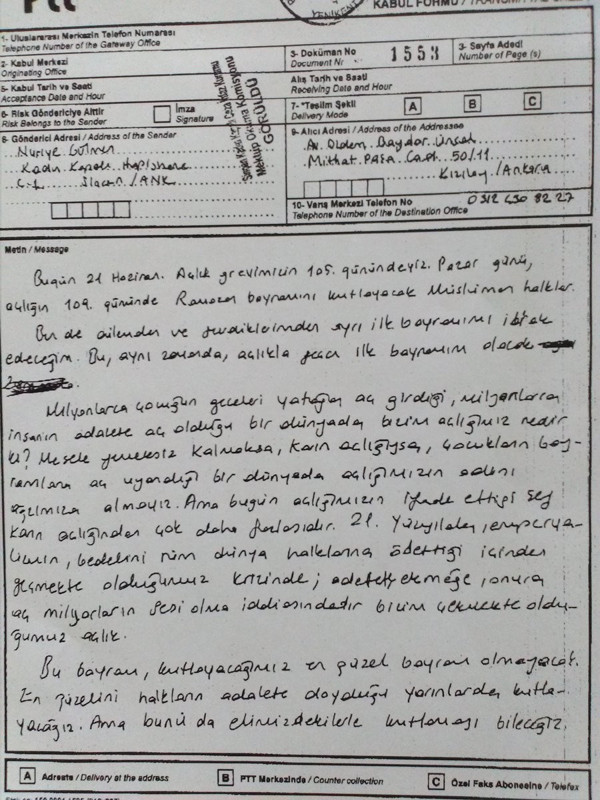 PTT
YENİKENT
KABUL FORMU /
1- Uluslararası Merkezin Telefon Numarası
Telephone Number of the Gateway Office
2- Kabul Merkezi
Originating Office
3- Doküman No
Document Nr
1553
3- Sayfa Adedi
Number of Page (s)
5- Kabul Tarih ve Saati
Acceptance Date and Hour
Alış Tarih ve Saati
Receiving Date and Hour
6- Risk Göndericiye Aittir
Risk Belongs to the Sender
İmza
Signature
7- *Teslim Şekli
Delivery Mode
A
B
C
Mektup Okuma Komisyonu
GÖRÜLDÜ
8- Gönderici Adresi / Address of the Sender
Nuriye Gülmen
Kadın Kapalı Hapishane
Sincan / ANK
9- Alıcı Adresi / Address of the Addressee
Av. Baydar Ünsal
Mithat Paşa Cad. 50/11
Kızılay / Ankara
10- Varış Merkezi Telefon No
Telephone Number of the Destination Office
0312 430 82 27
Metin / Message
Bugün 21 Haziran. Açlık grevimizin 105. günündeyiz. Pazar günü,
açlığın 109. gününde Ramazan bayramını kutlayacak Müslüman halklar.
Ben de ailemden ve sevdiklerimden ayrı ilk bayramımı idrak
edeceğim. Bu, aynı zamanda, açlıkla geçen ilk bayramım olacak
Milyonlarca çocuğun geceleri yatağa aç girdiği, milyonlarca
insanın adalete aç olduğu bir dünyada bizim açlığımız nedir
ki? Mesele yemeksiz kalmaksa, karın açlığıysa, çocukların bay-
ramlara aç uyandığı bir dünyada açlığımızın adını
ağzımıza almayız. Ama bugün açlığımızın ifade ettiği şey
karın açlığından çok daha fazlasıdır. 21. Yüzyılda, emperya-
lizmin, bedelini tüm dünya halklarına ödettiği içinden
geçmekte olduğumuz krizinde; adalete, ekmeğe, onura
aç milyonların sesi olma iddiasındadır bizim çekmekte oldu-
ğumuz açlık.
Bu bayram, kutlayacağımız en güzel bayram olmayacak.
En güzelini halkların adalete doyduğu yarınlarda kutla-
yacağız. Ama bunu da elimizdekilerle kutlamayı bileceğiz.
A Adreste / Delivery at the address
B PTT Merkezinde / Counter collection
C Özel Faks Abonesine / Telefax